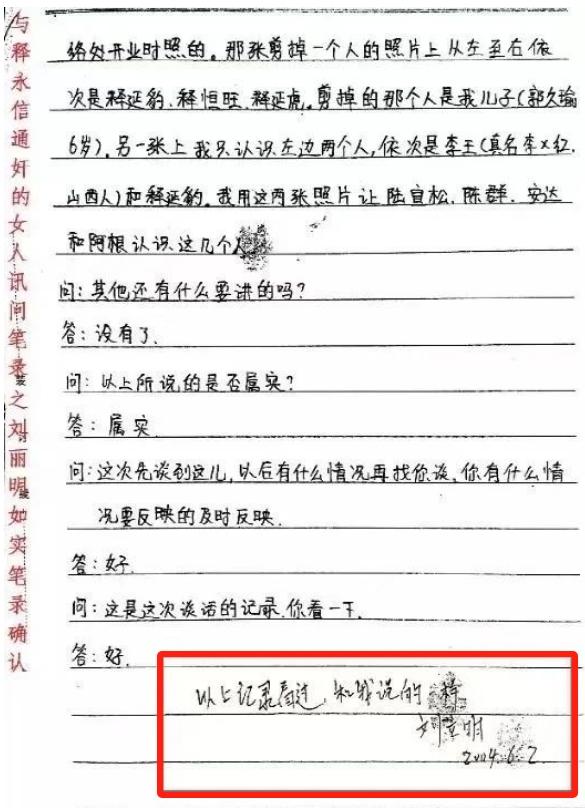 与释永信通奸的女人讯问笔录之刘丽明如实笔录确认
络处开业时照的。那张剪掉一个人的照片上从左至右依
次是释延豹、释恒旺、释延虎。剪掉的那个人是我儿子(郭久瑜
6岁)。另一张上我只认识左边两个人,依次是李王(真名李×红,
山西人)和释延豹。我用这两张照片让陆宜松、陈群、安达
和阿根认识这几个人
问:其他还有什么要讲的吗?
答:没有了.
问:以上所说的是否属实?
答:属实.
问:这次先谈到这儿,以后有什么情况再找你谈,你有什么情
况要反映的及时反映.
答:好.
问:这是这次谈话的记录.你看一下.
答:好.
以上记录看过,和我说的一样
刘立明
2004.6.2